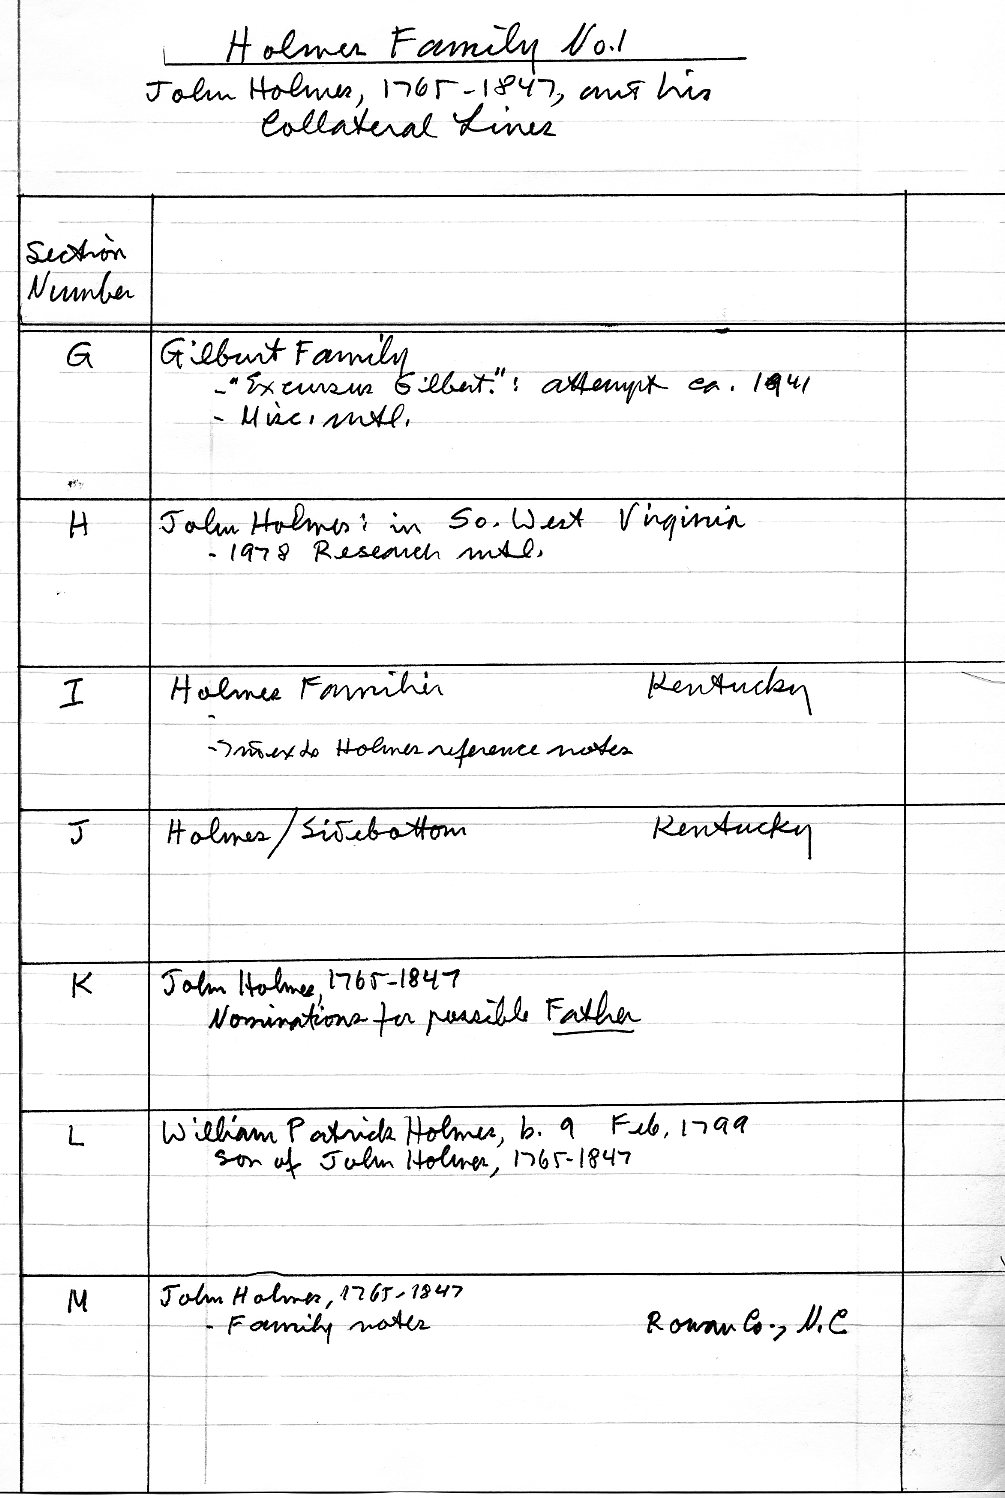 Holmes Family No. 1
John Holmes, 1765-1847, and his
Collateral Lines
Section
Number
G
Gilbert Family
- "Excursus Gilbert.": attempt ca. 1941
- Misc. mtl.
H
John Holmes: in So. West Virginia
- 1978 Research mtl.
I
Holmes Families Kentucky
-
- Index to Holmes reference notes
J
Holmes/Sidebottom Kentucky
K
John Holmes, 1765-1847
Nominations for possible Father
L
William Patrick Holmes, b. 9 Feb. 1799
son of John Holmes, 1765-1847
M
John Holmes, 1765-1847
- Family notes Rowan Co., N.C